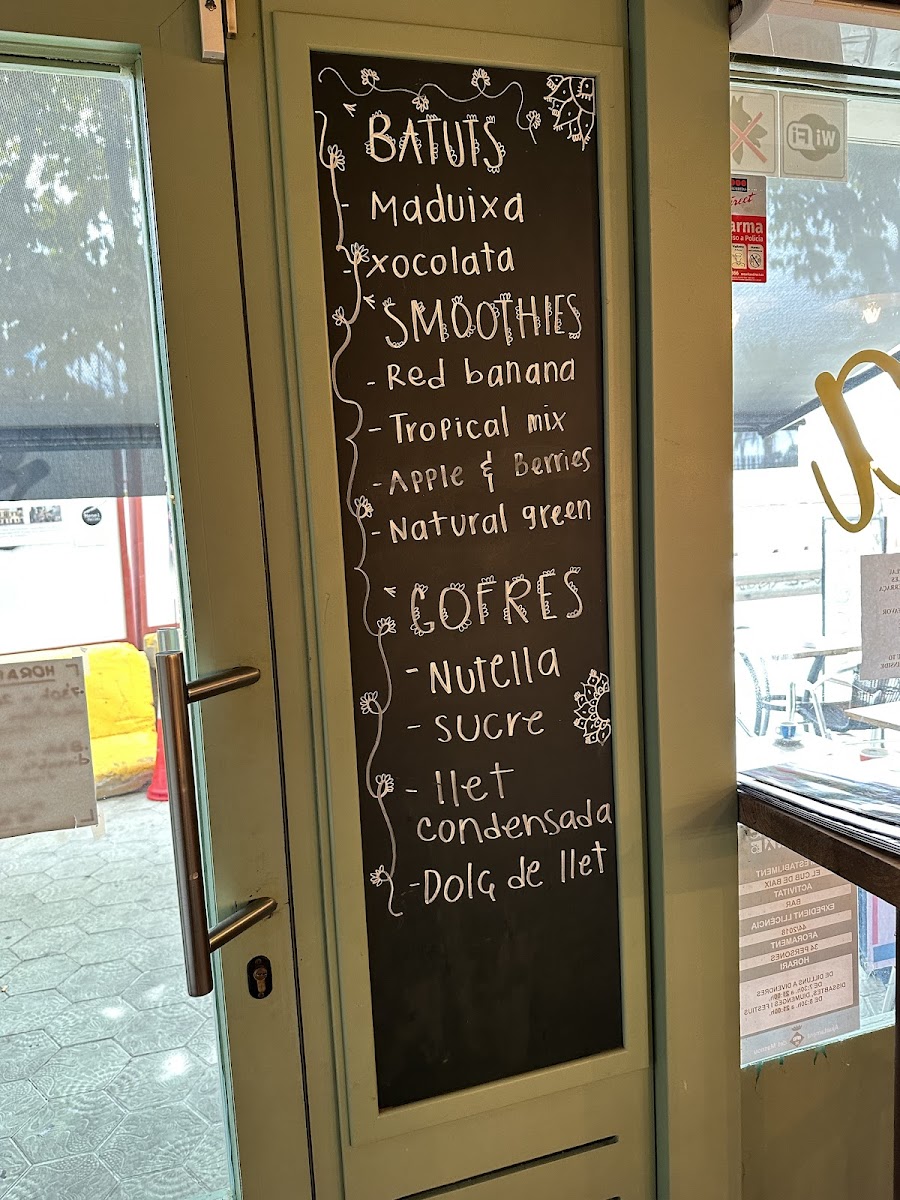 BATUTS
- Maduixa
- xocolata
SMOOTHIES
- Red banana
- Tropical mix
- Apple & Berries
- Natural green
GOFRES
- Nutella
- sucre
- llet
condensada
- Dolç de llet
WiFi
arma
HORARI
ESTABLIMENT
EL CUB DE BAIX
ACTIVITAT
BAR
EXPEDIENT LLICÈNCIA
44/2018
AFORAMENT
34 PERSONES
HORARI
DE DILLUNS A DIVENDRES
DISSABTES, DIUMENGES I FESTIUS